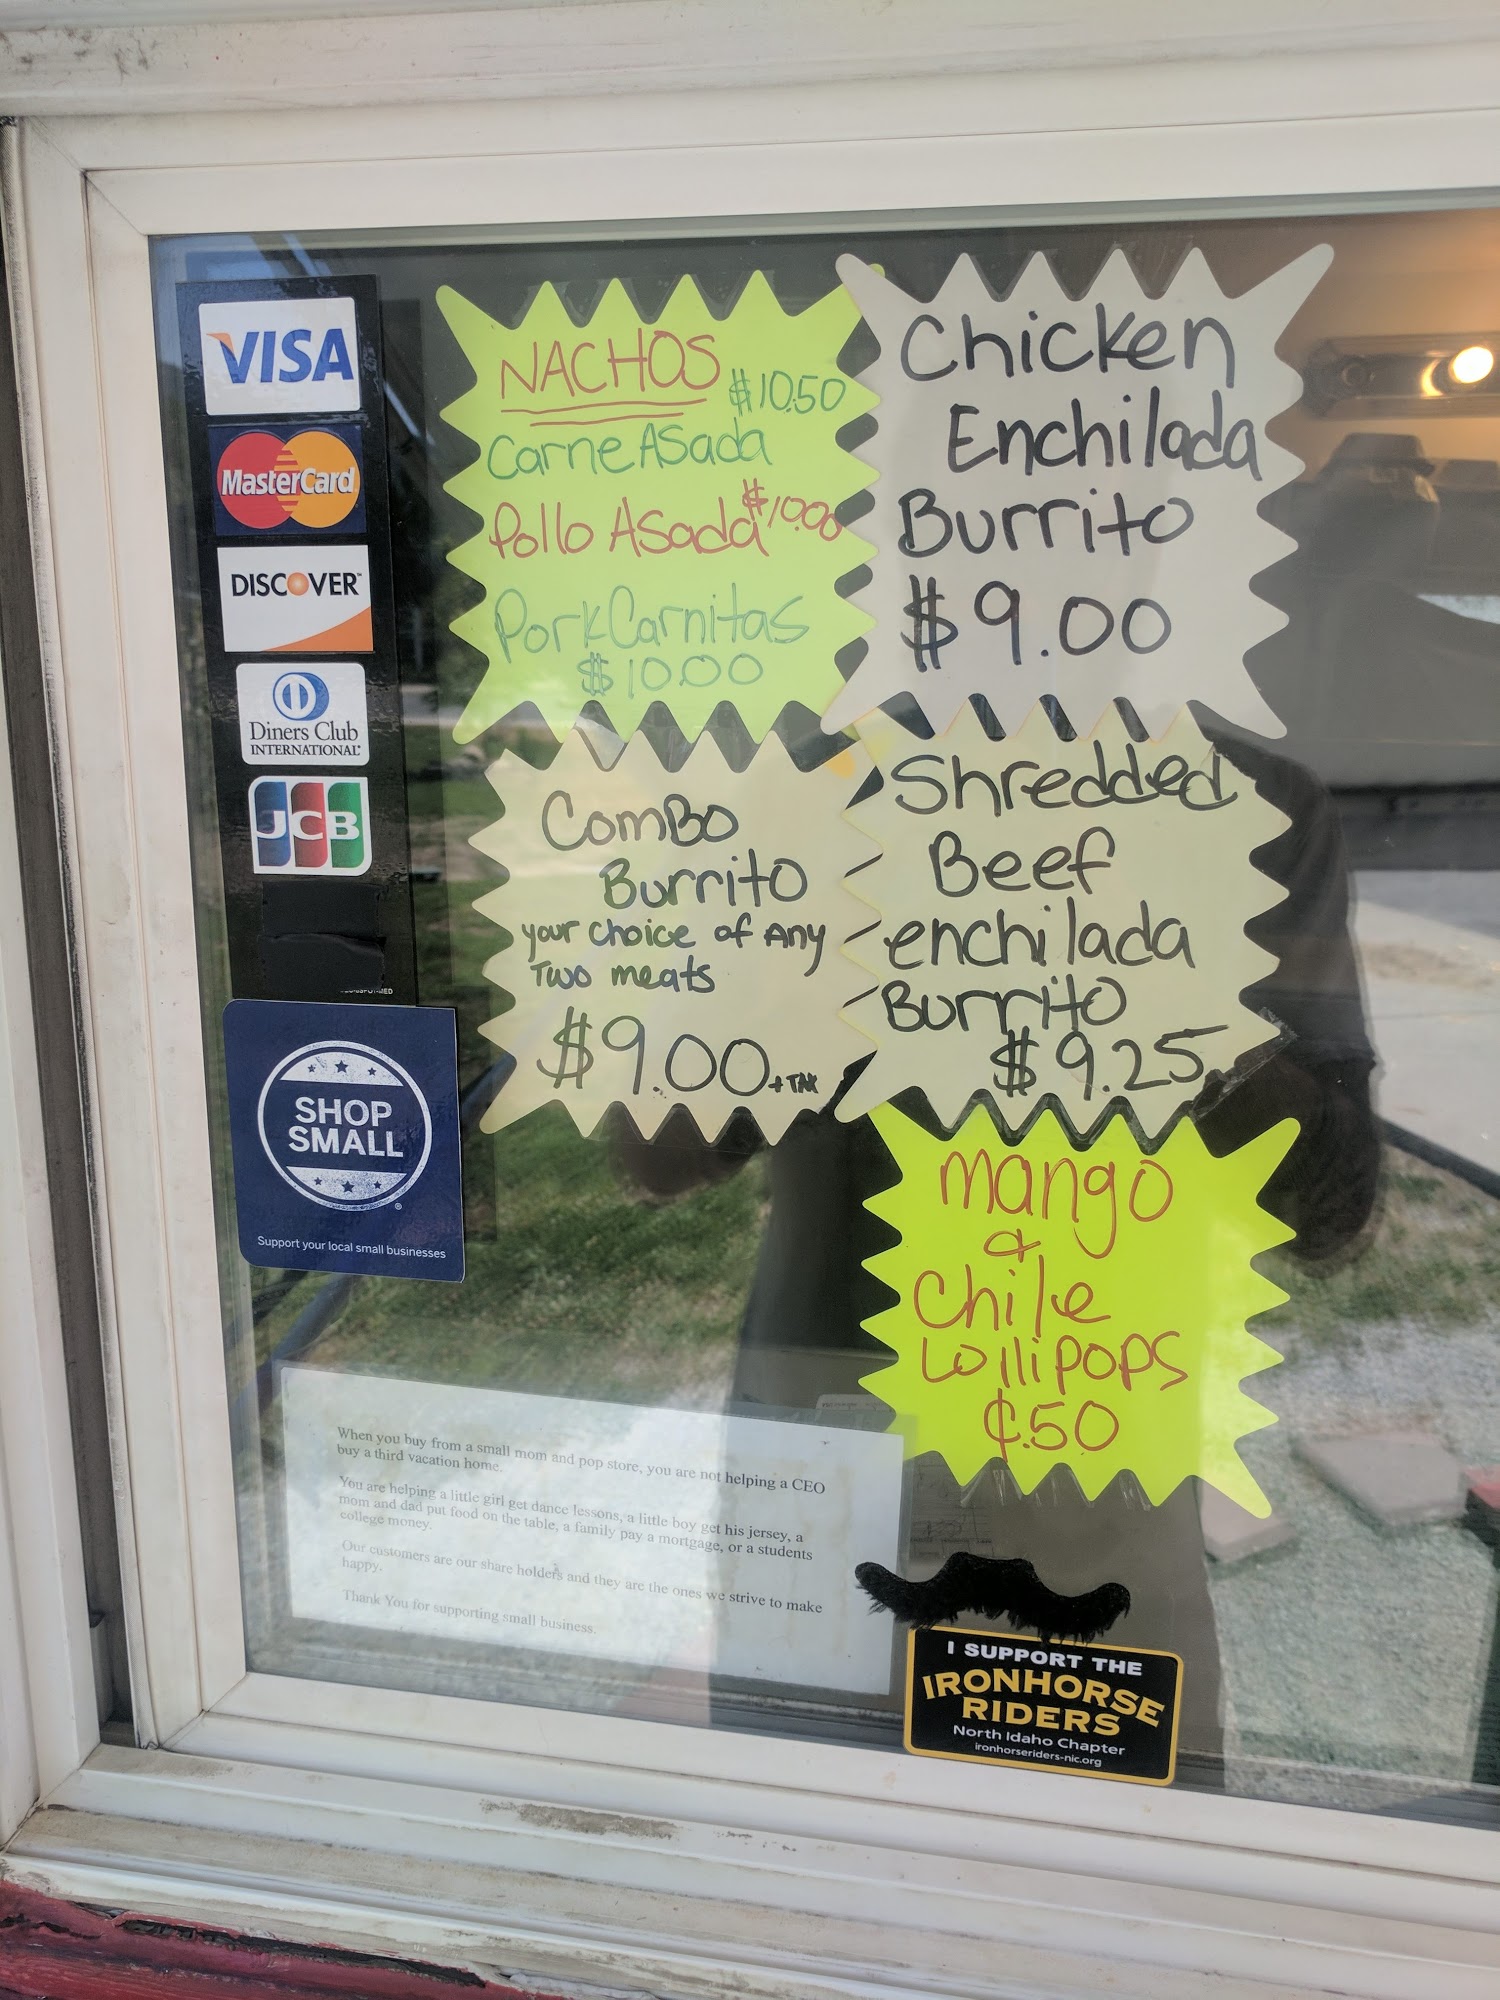 VISA
MasterCard
DISCOVER
Diners Club
INTERNATIONAL
JCB
SHOP
SMALL
Support your local small businesses
NACHOS
$10.50
Carne Asada
Pollo Asada $10.00
Pork Carnitas
$10.00
Chicken
Enchilada
Burrito
$9.00
Combo
Burrito
your choice of Any
Two meats
$9.00 + TAX
Shredded
Beef
enchilada
Burrito
$9.25
Mango
&
Chile
Lollipops
¢.50
When you buy from a small mom and pop store, you are not helping a CEO
buy a third vacation home.
You are helping a little girl get dance lessons, a little boy get his jersey, a
mom and dad put food on the table, a family pay a mortgage, or a students
college money.
Our customers are our share holders and they are the ones we strive to make
happy.
Thank You for supporting small business.
I SUPPORT THE
IRONHORSE
RIDERS
North Idaho Chapter
ironhorseriders-nic.org